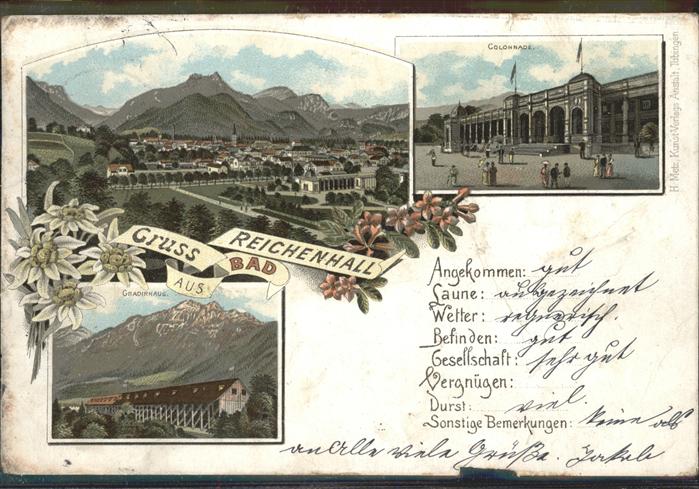 COLONNADE.
H. Metz, Kunst-Verlags-Anstalt, Tübingen
GRUSS AUS BAD REICHENHALL
GRADIRHAUS.
Angekommen: gut
Laune: ausgezeichnet
Wetter: regnerisch.
Befinden: gut
Gesellschaft: sehr gut
Vergnügen:
Durst: viel.
Sonstige Bemerkungen: keine als
an Alle viele Grüße. Jakob